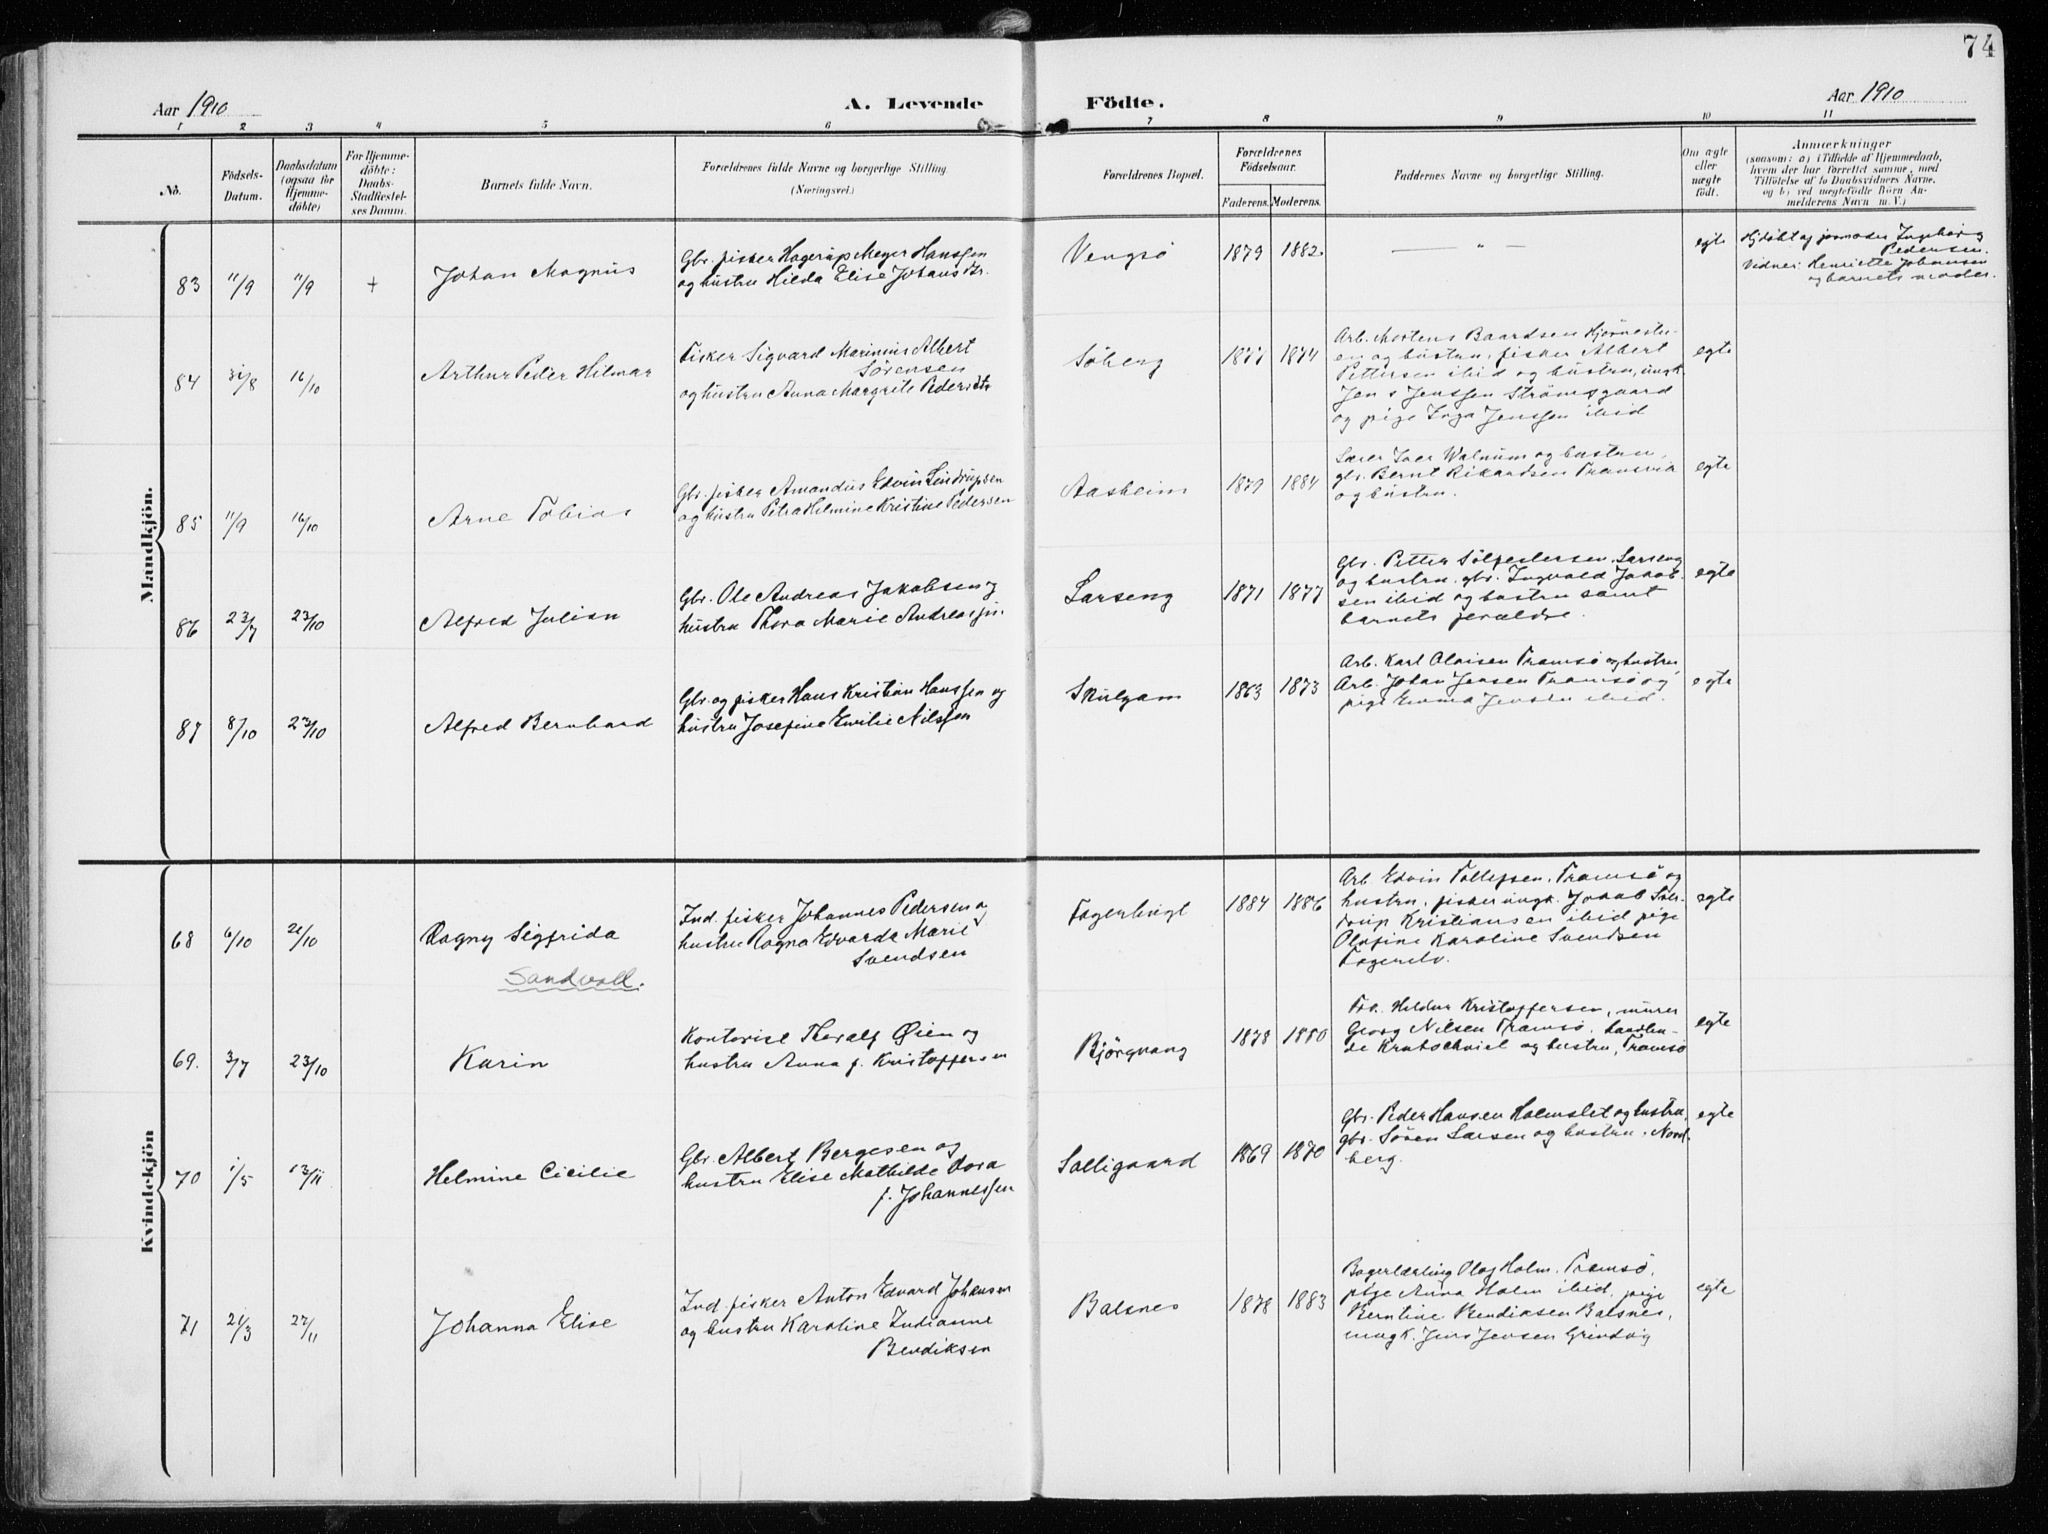 74
Aar 1910
A. Levende
Födte.
Aar 1910
1 2 3 4 5 6 7 8 9 10 11
No.
Födsels-
Datum.
Daabsdatum
(ogsaa for
Hjemme-
döbte)
For Hjemme-
döbte:
Daabs-
Stadfæstel-
ses Datum.
Barnets fulde Navn.
Forældrenes fulde Navne og borgerlige Stilling
(Næringsvei.)
Forældrenes Bopæl.
Forældrenes
Födselsaar.
Faderens. Moderens.
Faddernes Navne og borgerlige Stilling.
Om ægte
eller
uægte
födt.
Anmærkninger
(saasom: a) i Tilfælde af Hjemmedaab,
hvem der har forrettet samme, med
Tilföielse af to Daabsvidners Navne.
og b) ved uægtefödte Börn An-
melderens Navn m. V.)
Mandkjön.
83 11/9 11/9 +
Johan Magnus
Gbr. fisker Hagerup Meyer Hanssen
og hustru Hilda Elise Johansdtr.
Vengsö
1879 1882
— " —
egte
Hjdöbt af jormoder Ingeborg
Pedersen.
Vidner: Henriette Johansen
og barnets moder.
84 31/8 16/10
Arthur Peder Hilmar
Fisker Sigvard Marinius Albert
Sörensen
og hustru Anna Margrete Pedersdtr
Söberg
1877 1874
Arb. Mortens Baardsen Hjörnestu-
en og hustru, fisker Albert
Pettersen ibid og hustru, ungk.
Jens Jenssen Strömsgaard
og pige Inga Jenssen ibid
egte
85 11/9 16/10
Arne Tobias
Gbr. fisker Amandus Edvin Lindrupsen
og hustru Petra Helmine Kristine Pedersen
Aasheim
1879 1884
Lærer Iver Walnum og hustru,
gbr. Bernt Rikardsen Tromsvik
og hustru.
egte
86 23/7 23/10
Alfred Julian
Gbr. Ole Andreas Jakobsen og
hustru Thora Marie Andreasen
Larseng
1871 1877
Gbr. Petter Sölfestersen, Larseng
og hustru, gbr. Ingvald Jakob-
sen ibid og hustru samt
barnets forældre.
egte
87 8/10 23/10
Alfred Bernhard
Gbr. og fisker Hans Kristian Hanssen og
hustru Josefine Emilie Nilssen
Skulgam
1863 1873
Arb. Karl Olaisen Tromsö og hustru,
Arb. Johan Jensen Tromsö og
pige Emma Jensen ibid.
egte
Kvindekjön
68 6/10 21/10
Dagny Sigfrida
Sandvoll.
Ind. fisker Johannes Pedersen og
hustru Ragna Edvarda Marie
Svendsen
Fagerlingt
1884 1886
Arb. Edvin Tollefsen, Tromsö og
hustru, fisker ungk. Jakob Söl-
drup Kristiansen ibid pige
Olafine Karoline Svendsen
Fagerelv.
egte
69. 3/7 23/10
Karin
Kontorist Thoralf Øien og
hustru Anna f. Kristoffersen
Björgvang
1878 1880
Frk. Heldur Kristoffersen, murer
Georg Nilsen Tromsö,
og hustru, Tromsö
egte
70 1/5 13/11
Helmine Cicilie
Gbr. Albert Bergesen og
hustru Elise Mathilde Dora
f. Johannessen
Solligaard
1869 1870
Gbr. Peder Hansen Holmslet og hustru,
gbr. Sören Larsen og hustru, Nord-
berg.
egte
71 21/3 27/11
Johanna Elise
Ind. fisker Anton Edvard Johansen
og hustru Karoline Indianne
Bendiksen
Balsnes
1878 1883
Bagerlærling Olaf Holm, Tromsö,
pige Anna Holm ibid, pige
Berntine Bendiksen Balsnes,
ungk. Jens Jensen Grindvig
egte